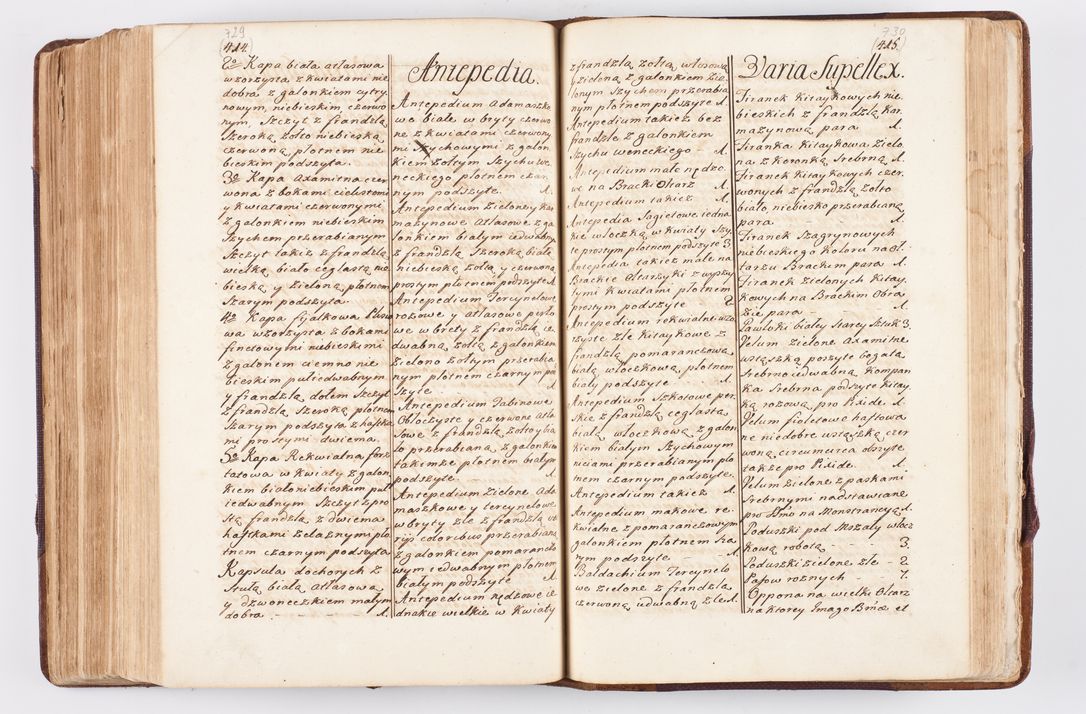 729
(414.
2o Kapa biała atłasowa
wzorzysta z kwiatami nie
dobra z galonkiem cytry
nowym, niebieskim czerwo
nym, Szczyt z frandzlą
szeroką żołto niebieską
czerwoną płotnem nie
bieskim podszyta.
3o Kapa Adamitna czer
wona z bokami cielistemi
y kwiatami czerwonymi
z galonkiem niebieskim
Szychem przerabianym
Szczyt takiż z frandzlą
wielką, biało ceglastą nie
bieską y zieloną, płotnem
szarym podszyta
4o Kapa fijałkowa
wa wzorzysta z bokami
finetowymi niebieskimi
z galonem ciemno nie
bieskim pułiedwabnym
y frandzlą dołem Szczyt
z frandzlą szeroką płotnem
szarym podszyta z haftka
mi prostymi dwiema.
5o Kapa Rekwialna forsz
tatowa w kwiaty z galon
kiem białoniebieskim puł
iedwabnym Szczyt z pro
stą frandzlą z dwiema
haftkami żelaznym pło
tnem czarnym podszyta
Kapsula dochorych z
Stułą białą atłasową
y dzwoneczkiem małym
dobra - 1.
Antepedia.
Antepedium Adamaszko
wo białe w bryty czerwo
ne z kwiatami czerwony
mi Szychowymi z galon
kiem żołtym Szychu we
neckiego płotnem czar
nym podszyte. 1.
Antepedium Zielone y kar
mazynowe Atłasowe z ga
lonkiem białym iedwabnym
z frandzlą Szeroką białą
niebieską żołtą y czerwoną
prostym płotnem podszyte 1.
Antepedium Tercynelowe
rożowe y atłasowe perło
we w brety z frandzlą ie
dwabną żołtą z galonkiem
zielono żołtym przerabia
nym płotnem czarnym po
szyte. 1
Antepedium Tabinowe
Obłoczyste y czerwone atła
sowe z frandzlą żołto y bia
ło przerabianą z galonkiem
takimże płotnem białym
podszyte. 1.
Antepedium Zielone Ada
maszkowe y tercynelowe
w bryty złe z frandzlą va
rijs coloribus przerabianą
z galonkiem pomarańczo
wym iedwabnym płotnem
białym podszyte 1.
Antepedium nędzowe ie
dnakie wielkie w kwiaty
730
415.
z frandzlą żołtą włosową
zieloną z galonkiem zie
lonym Szychem przerabia
nym płotnem podszyte 1.
Antepedium takież bez
frandzle z galonkiem
Szychu weneckiego - 1.
Antepedium małe nędzo
we na Bracki Ołtarz 1.
Antepedium takież 1.
Antepedia Sagietowe iedna
kie włoczką w kwiaty Szy
te prostym płotnem podszyte 3
Antepedia takież małe na
Brackie Ołtarzyki z wyszy
tymi kwiatami płotnem
prostym podszyte 2
Antepedium rekwialne wzo
rzyste złe kitaykowe z
frandzlą pomarańczową
białą włoczkową, płotnem
biały podszyte 1.
Antepedium Szkatowe per
skie z frandzlą ceglastą
białą włoczkową z galon
kiem białym Szychowym
niciami przerabianym pło
tnem czarnym podszyte.
Antepedium takież 1.
Antepedium makowe re
kwialne z pomarańczowym
galonkiem płotnem sza
rym podszyte - 1.
Baldachium Tercynelo
wo zielone z frandzlą
czerwoną iedwabną złe 1.
Varia Supellex.
Firanek kitaykowych nie
bieskich z frandzlą kar
mazynową para 1.
Firanka kitaykowa zielo
na z koronką srebrną 1.
Firanek kitaykowych czer
wonych z frandzlą żołto
biało, niebiesko przerabianą
para. 1
Firanek Szagrynowych
niebieskiego koloru na oł
tarzu Brackim para 1.
Firanek zielonych kitay
kowych na Brackim Obra
zie para - 1.
Pawłoki białey starey sztuk 3.
Velum zielone Axamitne
wstąszką poszyte bogatą
srebrno iedwabną, kompan
ka srebrna podszyte kitay
ką rożową pro Pixide. 1.
Velum fioletowe haftowa
ne niedobre wstąszką czer
woną circumcirca obszyte
także pro Pixide. 1.
Velum zielone z paskami
srebrnymi nadstawiane
pro Dno na Monstrancyą 1.
Poduszki pod Mszały włocz
kową robotą - 3.
Poduszki zielone złe - 2
Pasow rożnych - 7.
Oppona na wielki Ołtarz
na ktorey Imago Bmæ et